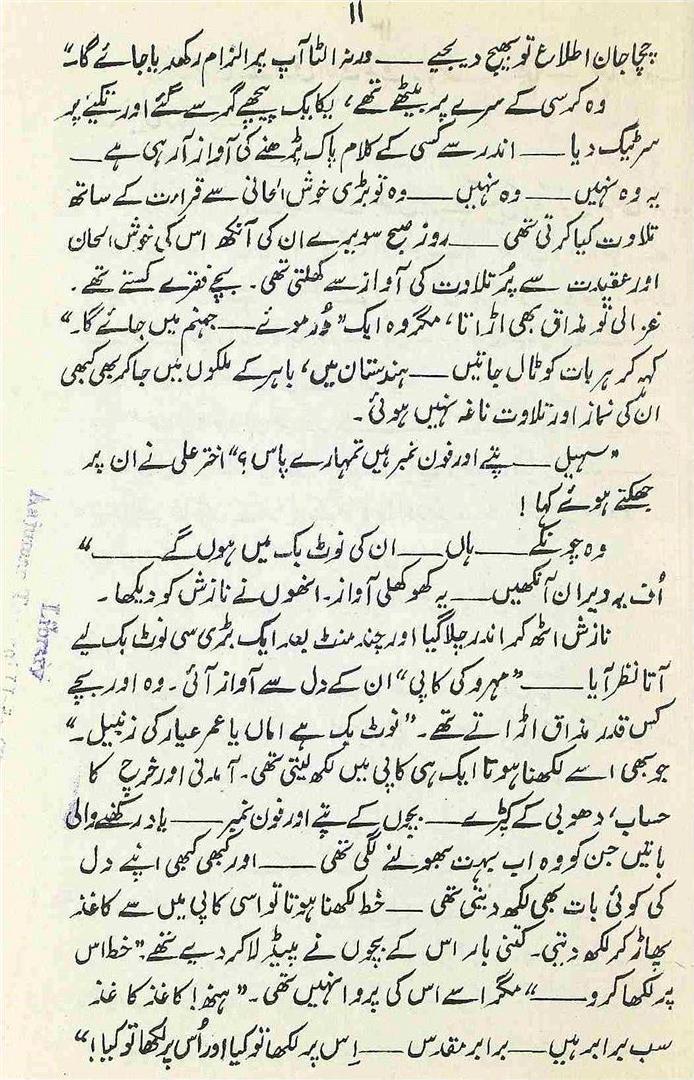 ۱۱
چچا جان اطلاع تو بھیج دیجیے ــــ ورنہ الٹا آپ پر الزام رکھ دیا جائے گا۔"
وہ کرسی کے سرے پر بیٹھے تھے، یکایک پیچھے گر سے گئے اور تکیے پر
سر ٹیک دیا ــــ اندر سے کسی کے کلام پاک پڑھنے کی آواز آ رہی ہے ــــ
یہ وہ نہیں ــــ وہ نہیں ــــ وہ تو بڑی خوش الحانی سے قرارت کے ساتھ
تلاوت کیا کرتی تھی ــــ روز صبح سویرے ان کی آنکھ اس کی خوش الحان
اور عقیدت سے پُر تلاوت کی آواز سے کھلتی تھی۔ بچے فقرے کستے تھے۔
غزالی تو مذاق بھی اڑاتا، مگر وہ ایک "دُر موئے ــــ جہنم میں جائے گا۔"
کہہ کر ہر بات کو ٹال جاتیں ــــ ہندستان میں، باہر کے ملکوں میں جا کر بھی کبھی
ان کی نماز اور تلاوت ناغہ نہیں ہوئی۔
"سہیل ــــ پتے اور فون نمبر ہیں تمہارے پاس؟" اختر علی نے ان پر
جھکتے ہوئے کہا!
وہ چونکے ــــ ہاں ــــ ان کی نوٹ بک میں ہوں گے ــــ"
اُف یہ ویران آنکھیں ــــ یہ کھوکھلی آواز۔ انھوں نے نازش کو دیکھا۔
نازش اٹھ کر اندر چلا گیا اور چند منٹ بعد ایک بڑی سی نوٹ بک لیے
آتا نظر آیا ــــ "مہرو کی کاپی" ان کے دل سے آواز آئی۔ وہ اور بچے
کس قدر مذاق اڑاتے تھے۔ "نوٹ بک ہے اماں یا عمر عیار کی زنبیل۔"
جو بھی اسے لکھنا ہوتا ایک ہی کاپی میں لکھ لیتی تھی۔ آمدنی اور خرچ کا
حساب، دھوبی کے کپڑے ــــ بچوں کے پتے اور فون نمبر ــــ یاد رکھنے والی
باتیں جن کو وہ اب بہت بھولنے لگی تھی ــــ اور کبھی کبھی اپنے دل
کی کوئی بات بھی لکھ دیتی تھی ــــ خط لکھنا ہوتا تو اسی کاپی میں سے کاغذ
پھاڑ کر لکھ دیتی۔ کتنی بار اس کے بچوں نے پیڈ لا کر دیے تھے "خط اس
پر لکھا کرو ــــ" مگر اسے اس کی پروا نہیں تھی۔ "ہنھ! کاغذ کاغذ
سب برابر ہیں ــــ برابر مقدس ــــ اِس پر لکھا تو کیا اور اُس پر لکھا تو کیا!"
Library